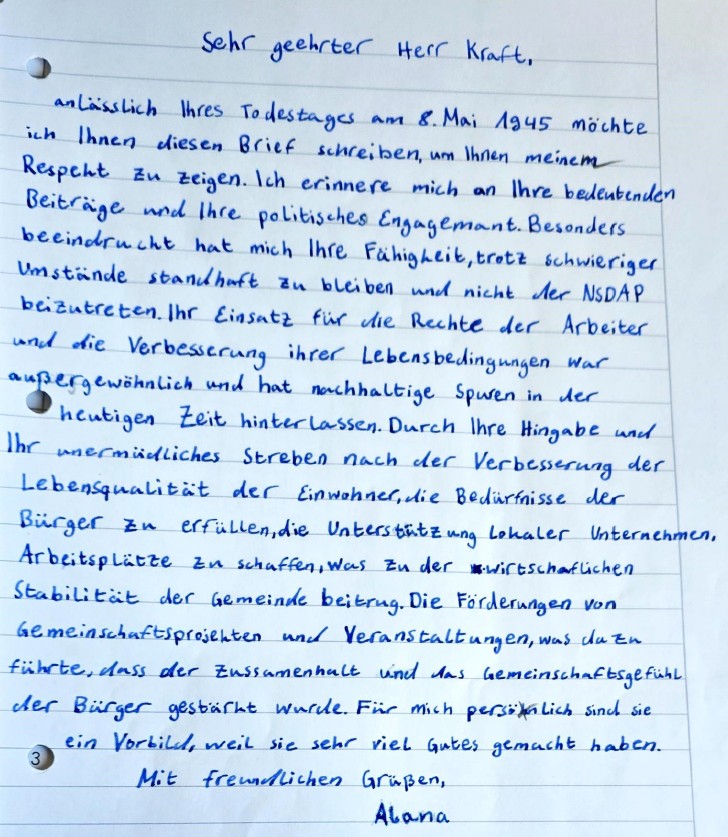 Sehr geehrter Herr Kraft,
anlässlich Ihres Todestages am 8. Mai 1945 möchte
ich Ihnen diesen Brief schreiben, um Ihnen meinem
Respekt zu zeigen. Ich erinnere mich an Ihre bedeutenden
Beiträge und Ihre politisches Engagemant. Besonders
beeindruckt hat mich Ihre Fähigkeit, trotz schwieriger
Umstände standhaft zu bleiben und nicht der NSDAP
beizutreten. Ihr Einsatz für die Rechte der Arbeiter
und die Verbesserung ihrer Lebensbedingungen war
außergewöhnlich und hat nachhaltige Spuren in der
heutigen Zeit hinterlassen. Durch Ihre Hingabe und
Ihr unermüdliches Streben nach der Verbesserung der
Lebensqualität der Einwohner, die Bedürfnisse der
Bürger zu erfüllen, die Unterstützung lokaler Unternehmen,
Arbeitsplätze zu schaffen, was zu der wirtschaflichen
Stabilität der Gemeinde beitrug. Die Förderungen von
Gemeinschaftsprojekten und Veranstaltungen, was dazu
führte, dass der Zussamenhalt und das Gemeinschaftsgefühl
der Bürger gestärkt wurde. Für mich persönlich sind sie
ein Vorbild, weil sie sehr viel Gutes gemacht haben.
3
Mit freundlichen Grüßen,
Alana